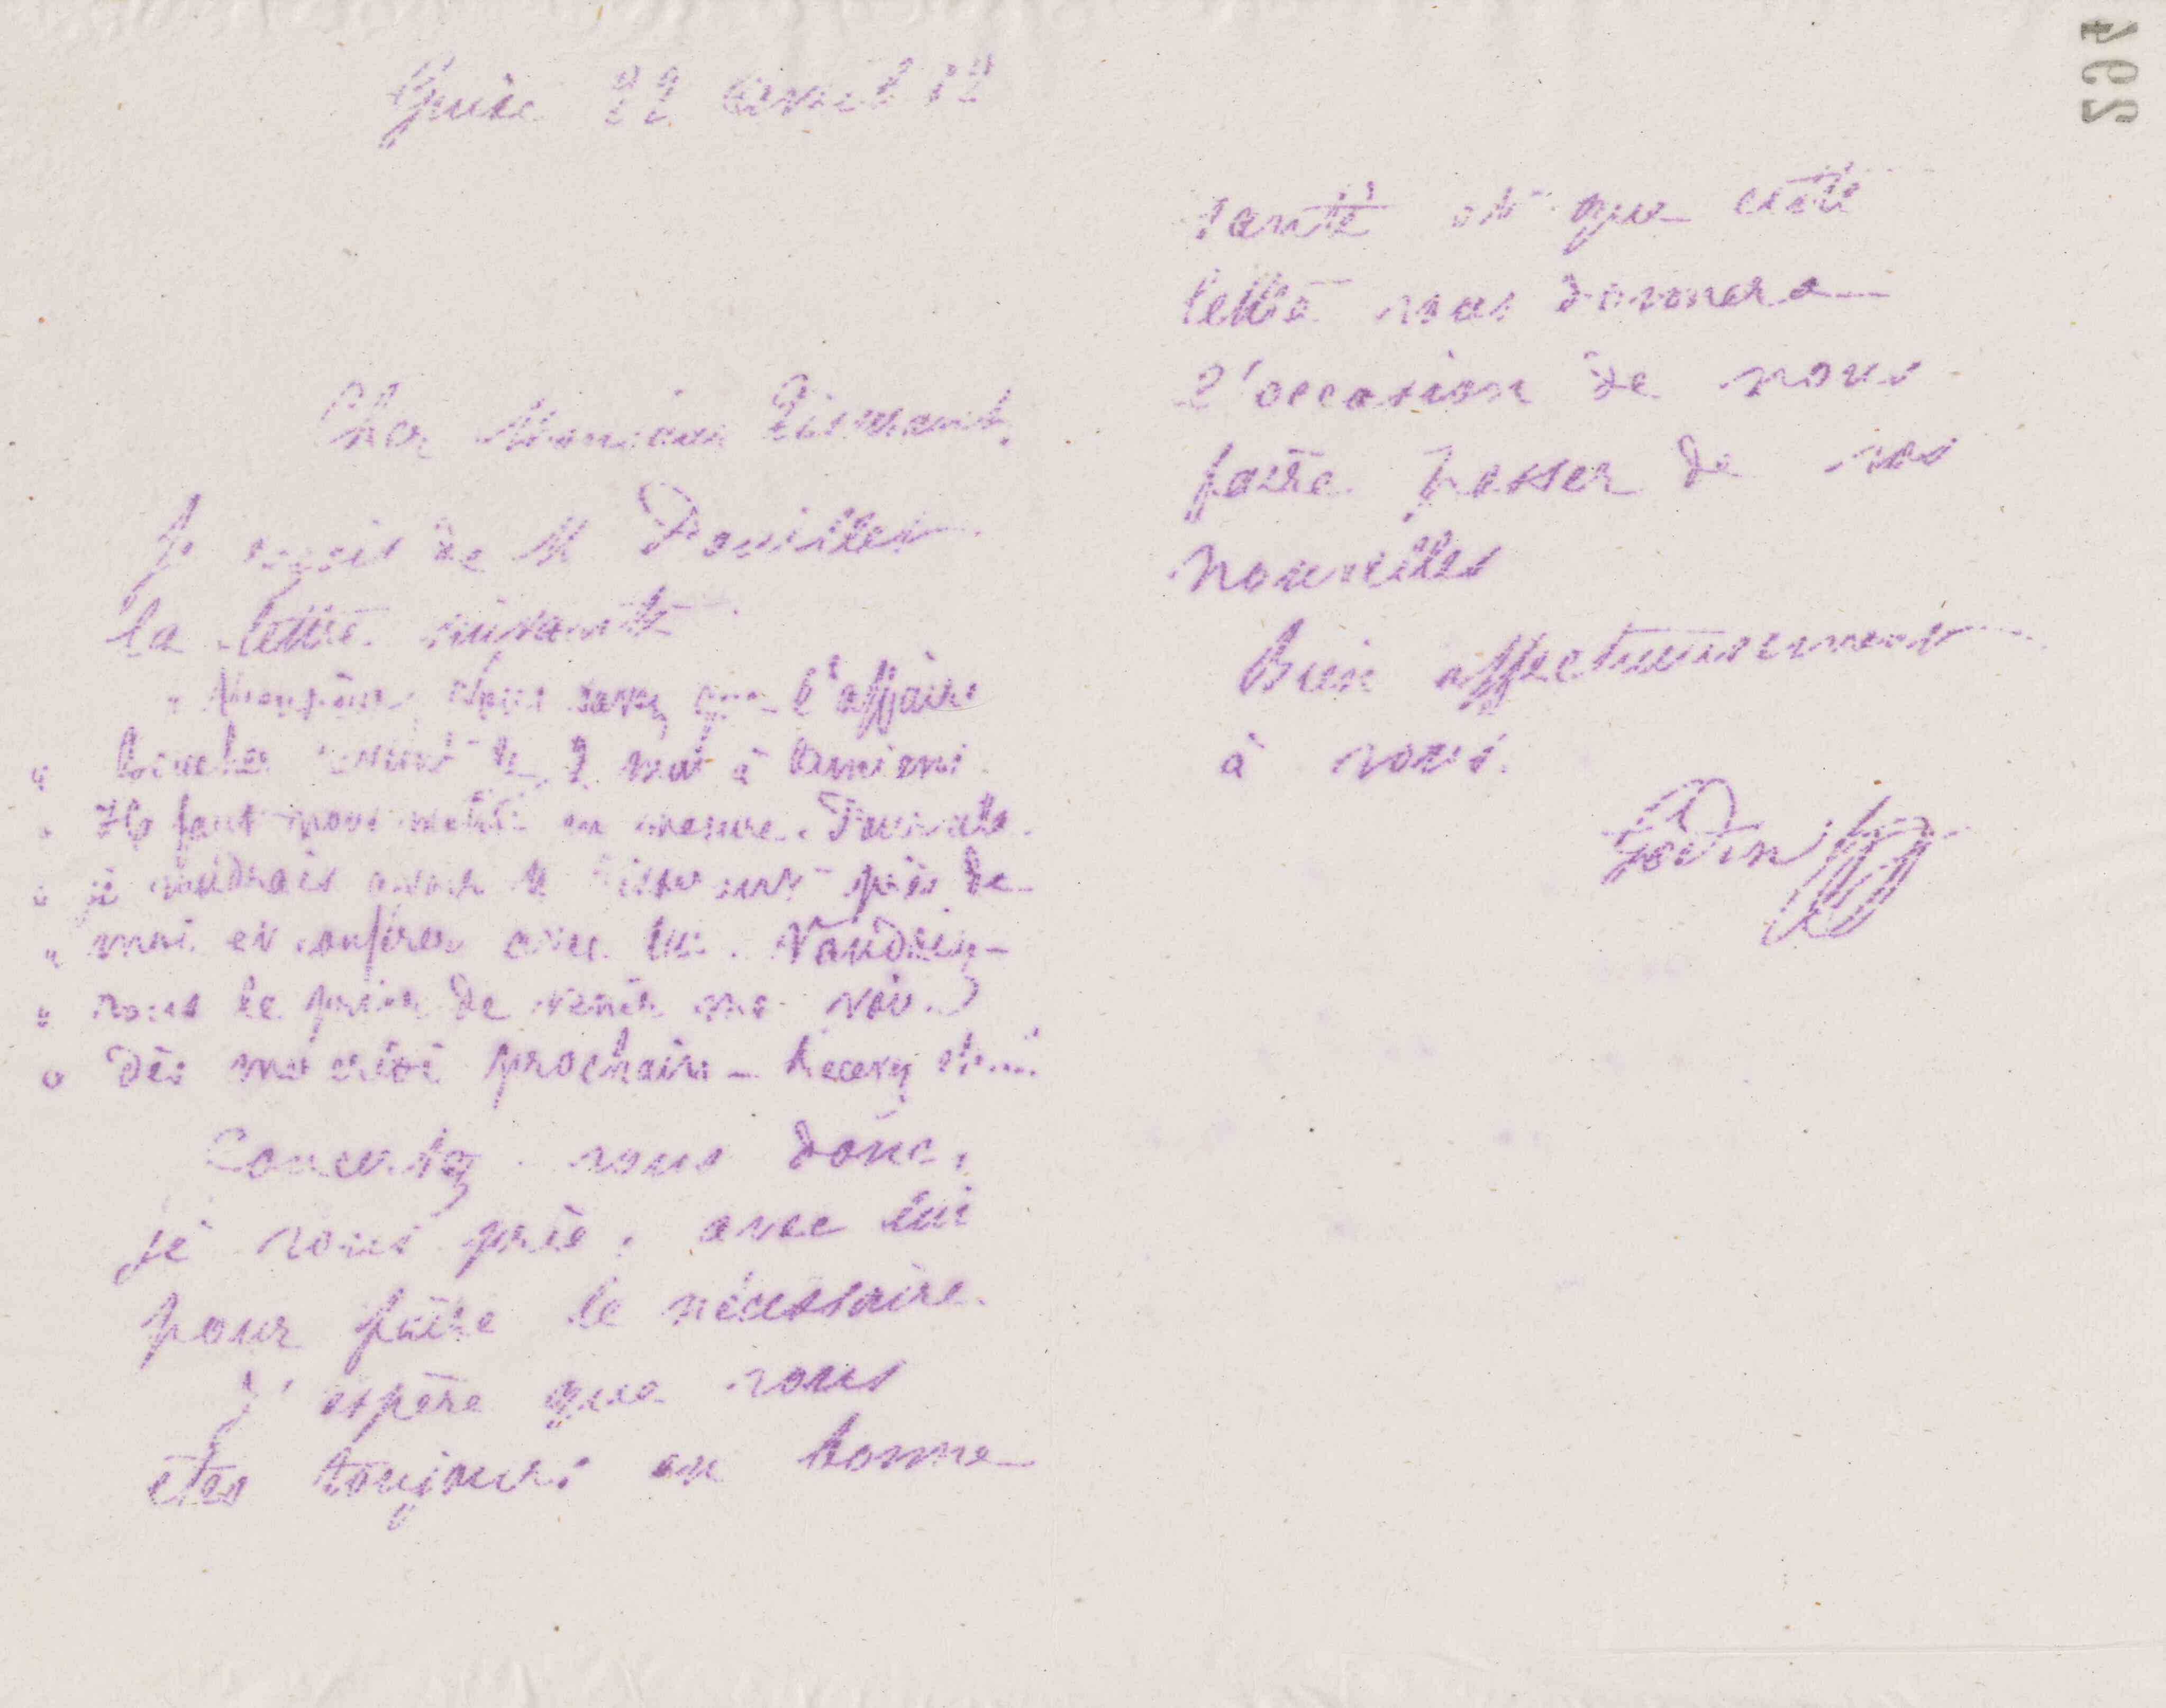 Guise 22 avril 12
Cher Monsieur Tisserant,
Je reçois de M Pouillet
la lettre suivante
" Monsieur, Vous savez que l'affaire
" Boucher revient le 2 mai à Amiens.
" Il faut nous mettre en mesure. Pour cela
" je voudrais avoir M Tisserant près de
" moi et conférer avec lui. Voudriez-
" vous le prier de venir me voir
" dès mercredi prochain - Recevez etc..."
Concertez vous donc,
je vous prie, avec lui
pour faire le nécessaire.
J'espère que vous
êtes toujours en bonne
santé et que cette
lettre vous donnera
l'occasion de nous
faire passer de vos
nouvelles
Bien affectueusement
à vous.
Godin
462